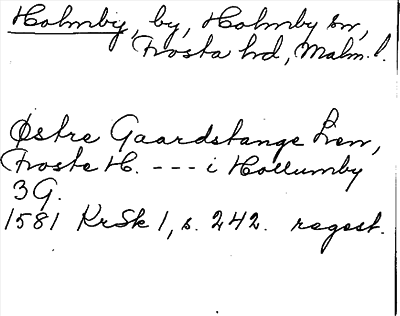 Holmby, by, Holmby sn,
Frosta hd, Malm. l.
Østre Gaardstange Len,
Froste H. --- i Hollumby
3 G.
1581 KrSk 1, s. 242. regest.